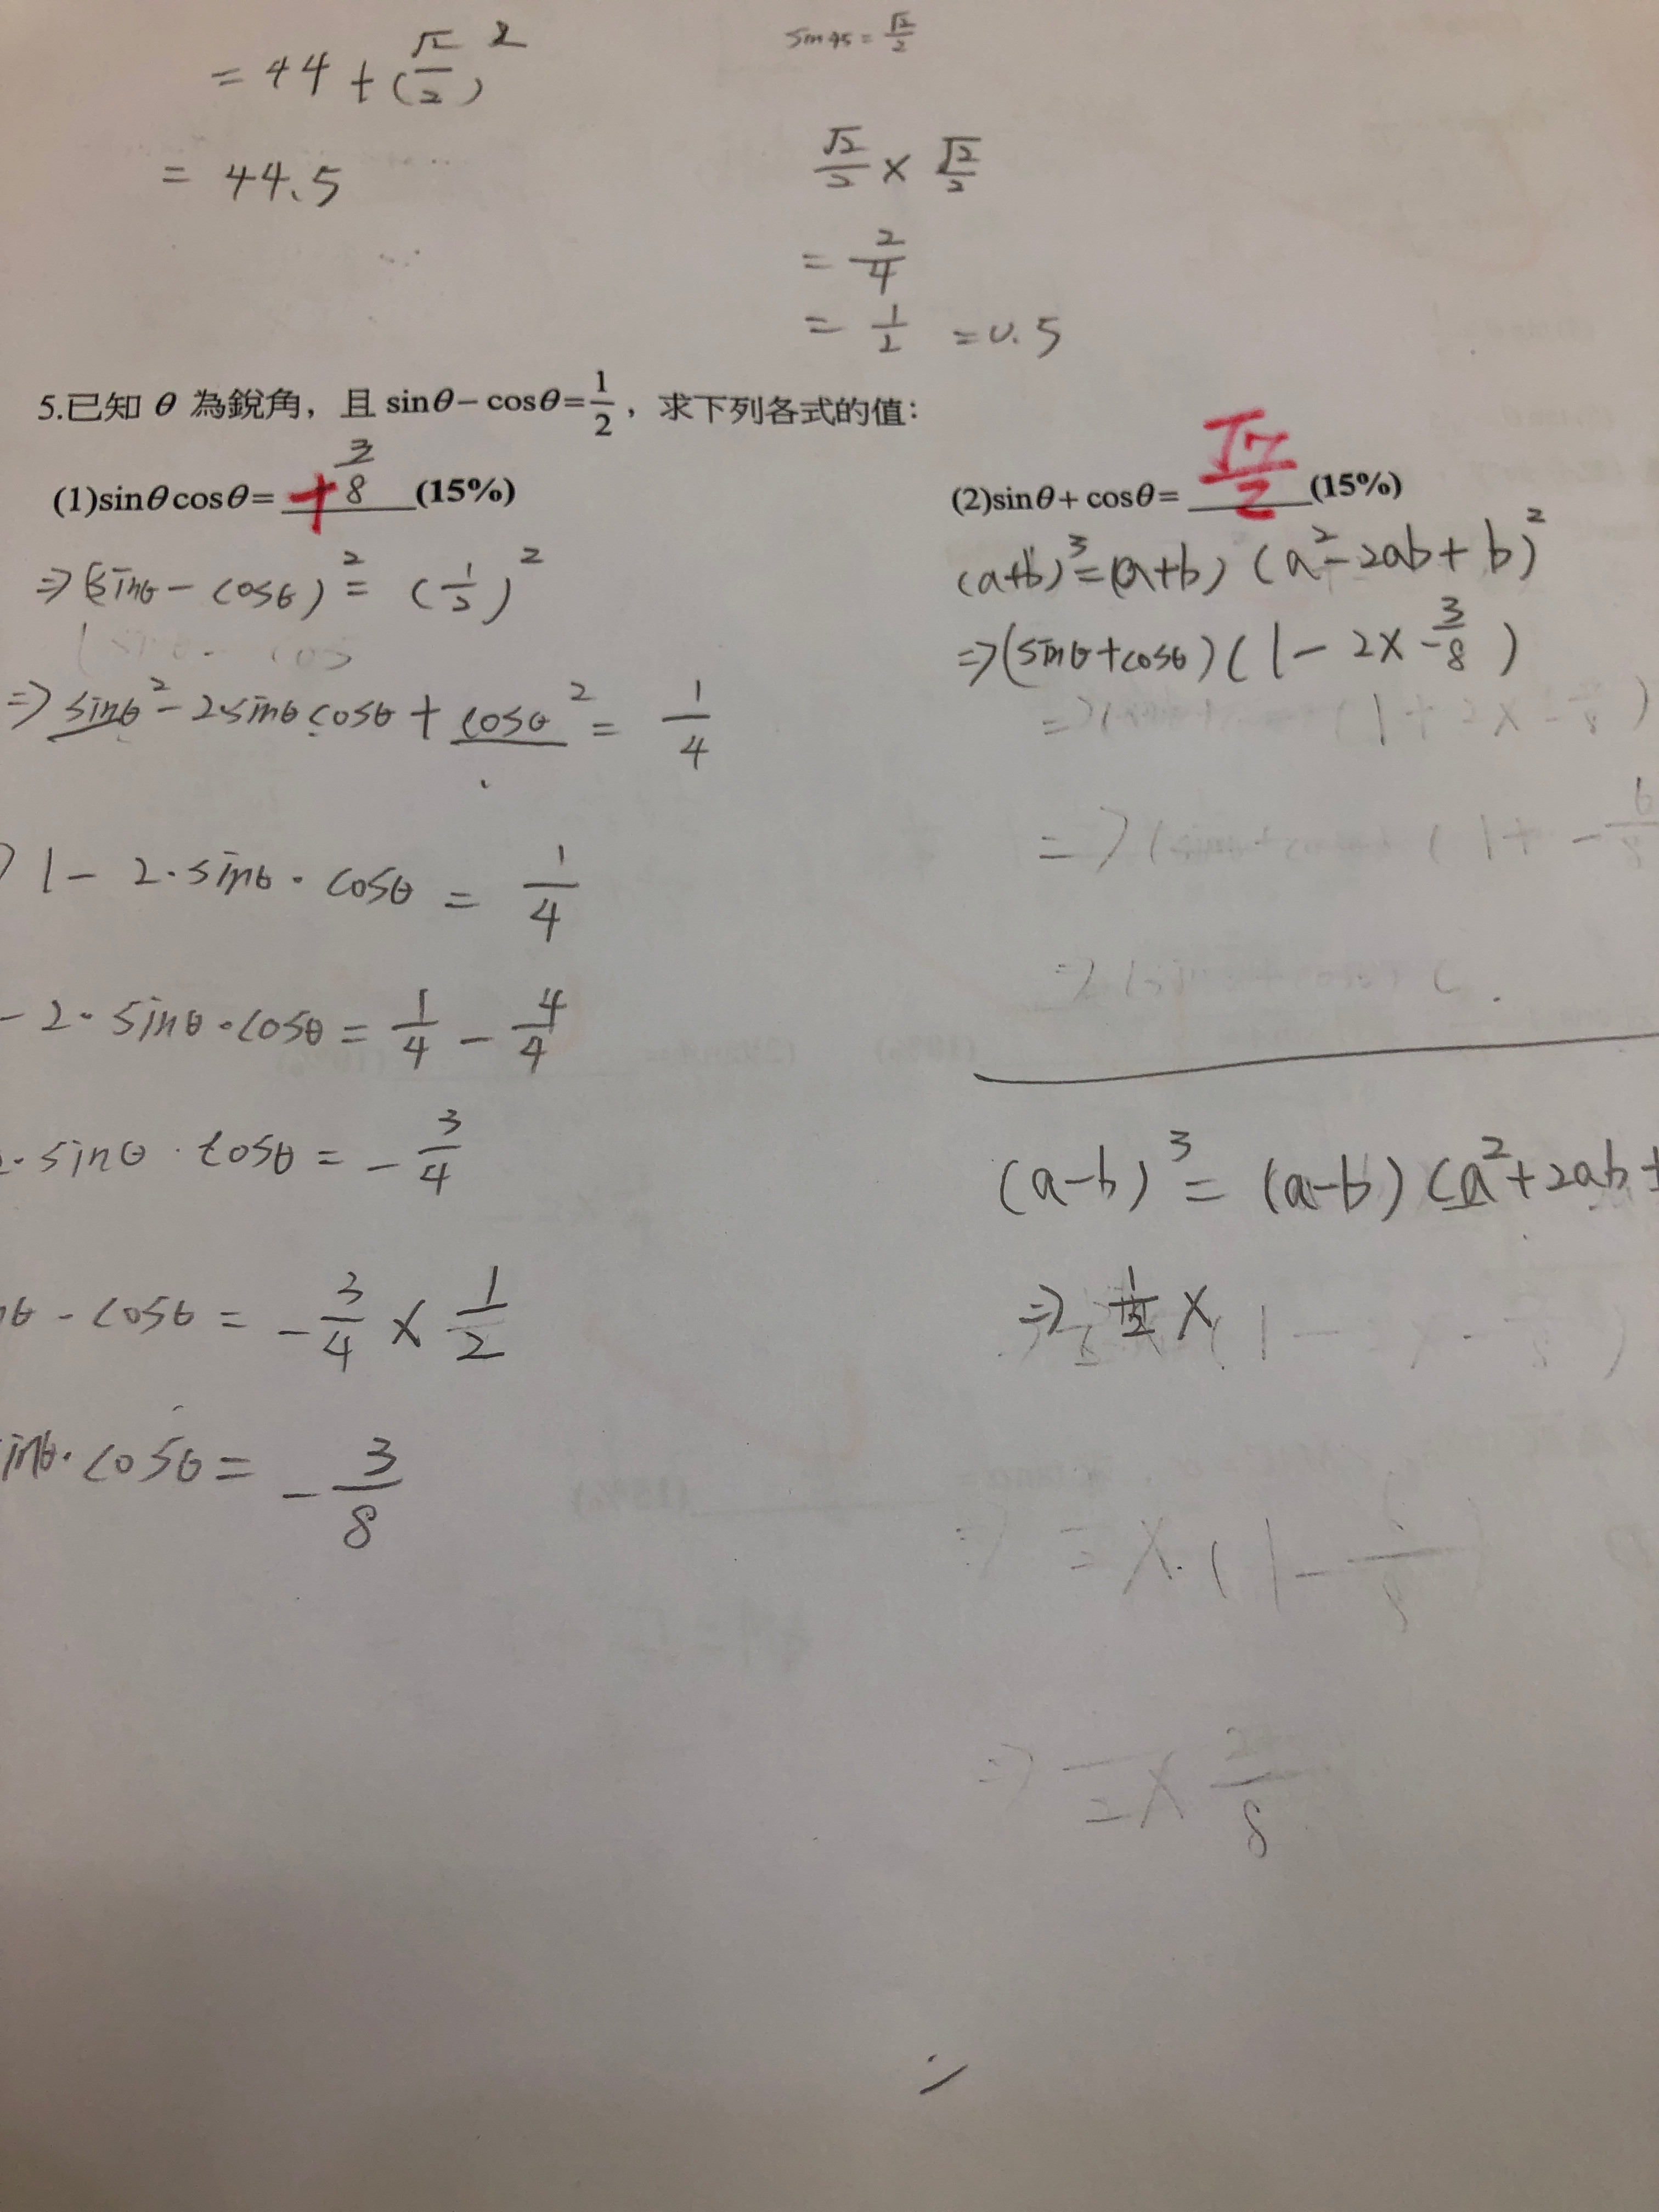 = 44 + (√2/2)²
= 44.5
sin45 = √2/2
√2/2 × √2/2
= 2/4
= 1/2 = 0.5
5.已知 θ 為銳角，且 sinθ − cosθ = 1/2，求下列各式的值：
(1)sinθcosθ= + 3/8 (15%)
(2)sinθ + cosθ= √7/2 (15%)
⇒ (sinθ − cosθ)² = (1/2)²
⇒ sinθ² − 2sinθ cosθ + cosθ² = 1/4
1 − 2·sinθ·cosθ = 1/4
− 2·sinθ·cosθ = 1/4 − 4/4
·sinθ·cosθ = − 3/4
θ - cosθ = − 3/4 × 1/2
inθ·cosθ = − 3/8
(a+b)³ = (a+b) (a² − 2ab + b)²
⇒ (sinθ + cosθ) (1 − 2 × −3/8)
(a−b)³ = (a−b) (a² + 2ab +
⇒ 1/2 ×